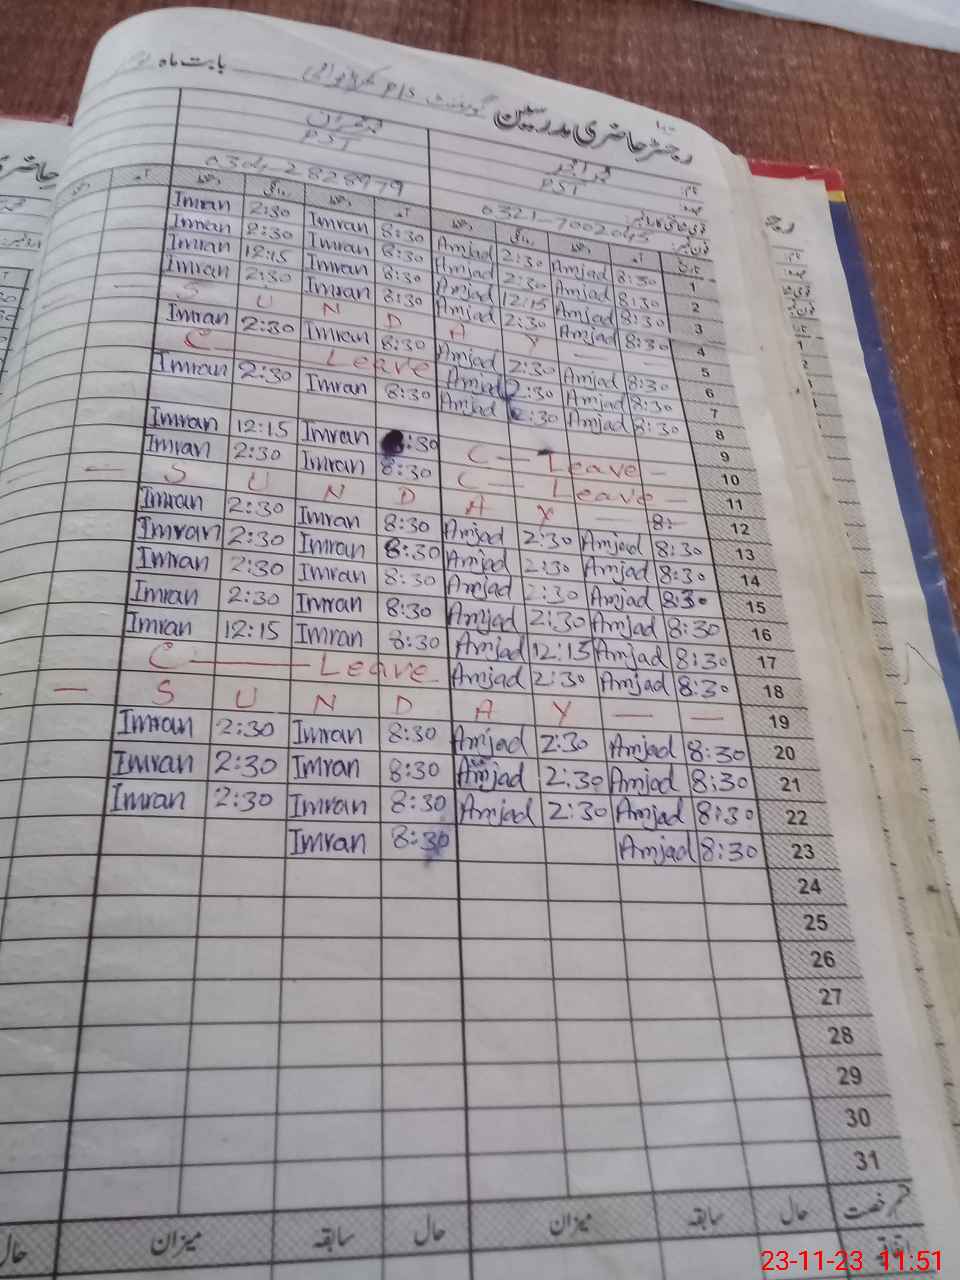 رجسٹر حاضری مدرسین گورنمنٹ P/S بابت ماہ
نام: محمد امجد محمد عمران
عہدہ: PST PST
0321-7002045 0304-2828979
تاریخ آمد دستخط روانگی دستخط آمد دستخط روانگی دستخط آمد
Imran 2:30 Imran 8:30 Amjad 2:30 Amjad 8:30 1
Imran 2:30 Imran 8:30 Amjad 2:30 Amjad 8:30 2
Imran 12:15 Imran 8:30 Amjad 12:15 Amjad 8:30 3
Imran 2:30 Imran 8:30 Amjad 2:30 Amjad 8:30 4
— — S U N D A Y — — 5
Imran 2:30 Imran 8:30 Amjad 2:30 Amjad 8:30 6
C — Leave Amjad 2:30 Amjad 8:30 7
Imran 2:30 Imran 8:30 Amjad 2:30 Amjad 8:30 8
9
Imran 12:15 Imran 8:30 C — Leave — 10
Imran 2:30 Imran 8:30 C — Leave — 11
— — S U N D A Y — 8:- 12
Imran 2:30 Imran 8:30 Amjad 2:30 Amjad 8:30 13
Imran 2:30 Imran 8:30 Amjad 2:30 Amjad 8:30 14
Imran 2:30 Imran 8:30 Amjad 2:30 Amjad 8:30 15
Imran 2:30 Imran 8:30 Amjad 2:30 Amjad 8:30 16
Imran 12:15 Imran 8:30 Amjad 12:15 Amjad 8:30 17
C — Leave Amjad 2:30 Amjad 8:30 18
— S U N D A Y — — 19
Imran 2:30 Imran 8:30 Amjad 2:30 Amjad 8:30 20
Imran 2:30 Imran 8:30 Amjad 2:30 Amjad 8:30 21
Imran 2:30 Imran 8:30 Amjad 2:30 Amjad 8:30 22
Imran 8:30 Amjad 8:30 23
24
25
26
27
28
29
30
31
قسم رخصت حال سابقہ میزان حال سابقہ میزان حال
23-11-23 11:51